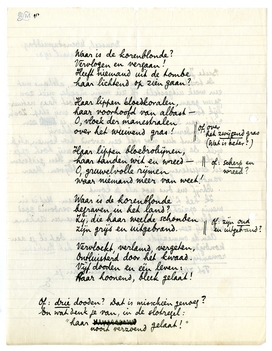 Waar is de korenblonde?
Vervlogen en vergaan!
Heeft niemand uit de hombe
haar lichtend op zien gaan?
Haar lippen bloedkoralen,
haar voorhoofd van albast —
O, vloek der manestralen
over het wuivend gras!
of: over
het zwijgend gras
(Wat is beter?)
Haar lippen bloedrobijnen,
haar tanden wit en wreed —
O, gruwelvolle rijmen
waar niemand meer van weet!
of: scherp en
wreed?
Waar is de korenblonde
begraven in het land?
Zij, die haar weelde schonden
zijn grijs en uitgebrand.
of: zijn oud
en uitgebrand?
Vervloekt, verland, vergeten,
Ontluisterd door het kwaad.
Vijf dooden en een leven:
Haar hoonend, bleek gelaat!
Of: drie dooden? Dat is misschien genoeg?
En wat denk je van, in de slotregel:
"haar nooit verzoend gelaat!"